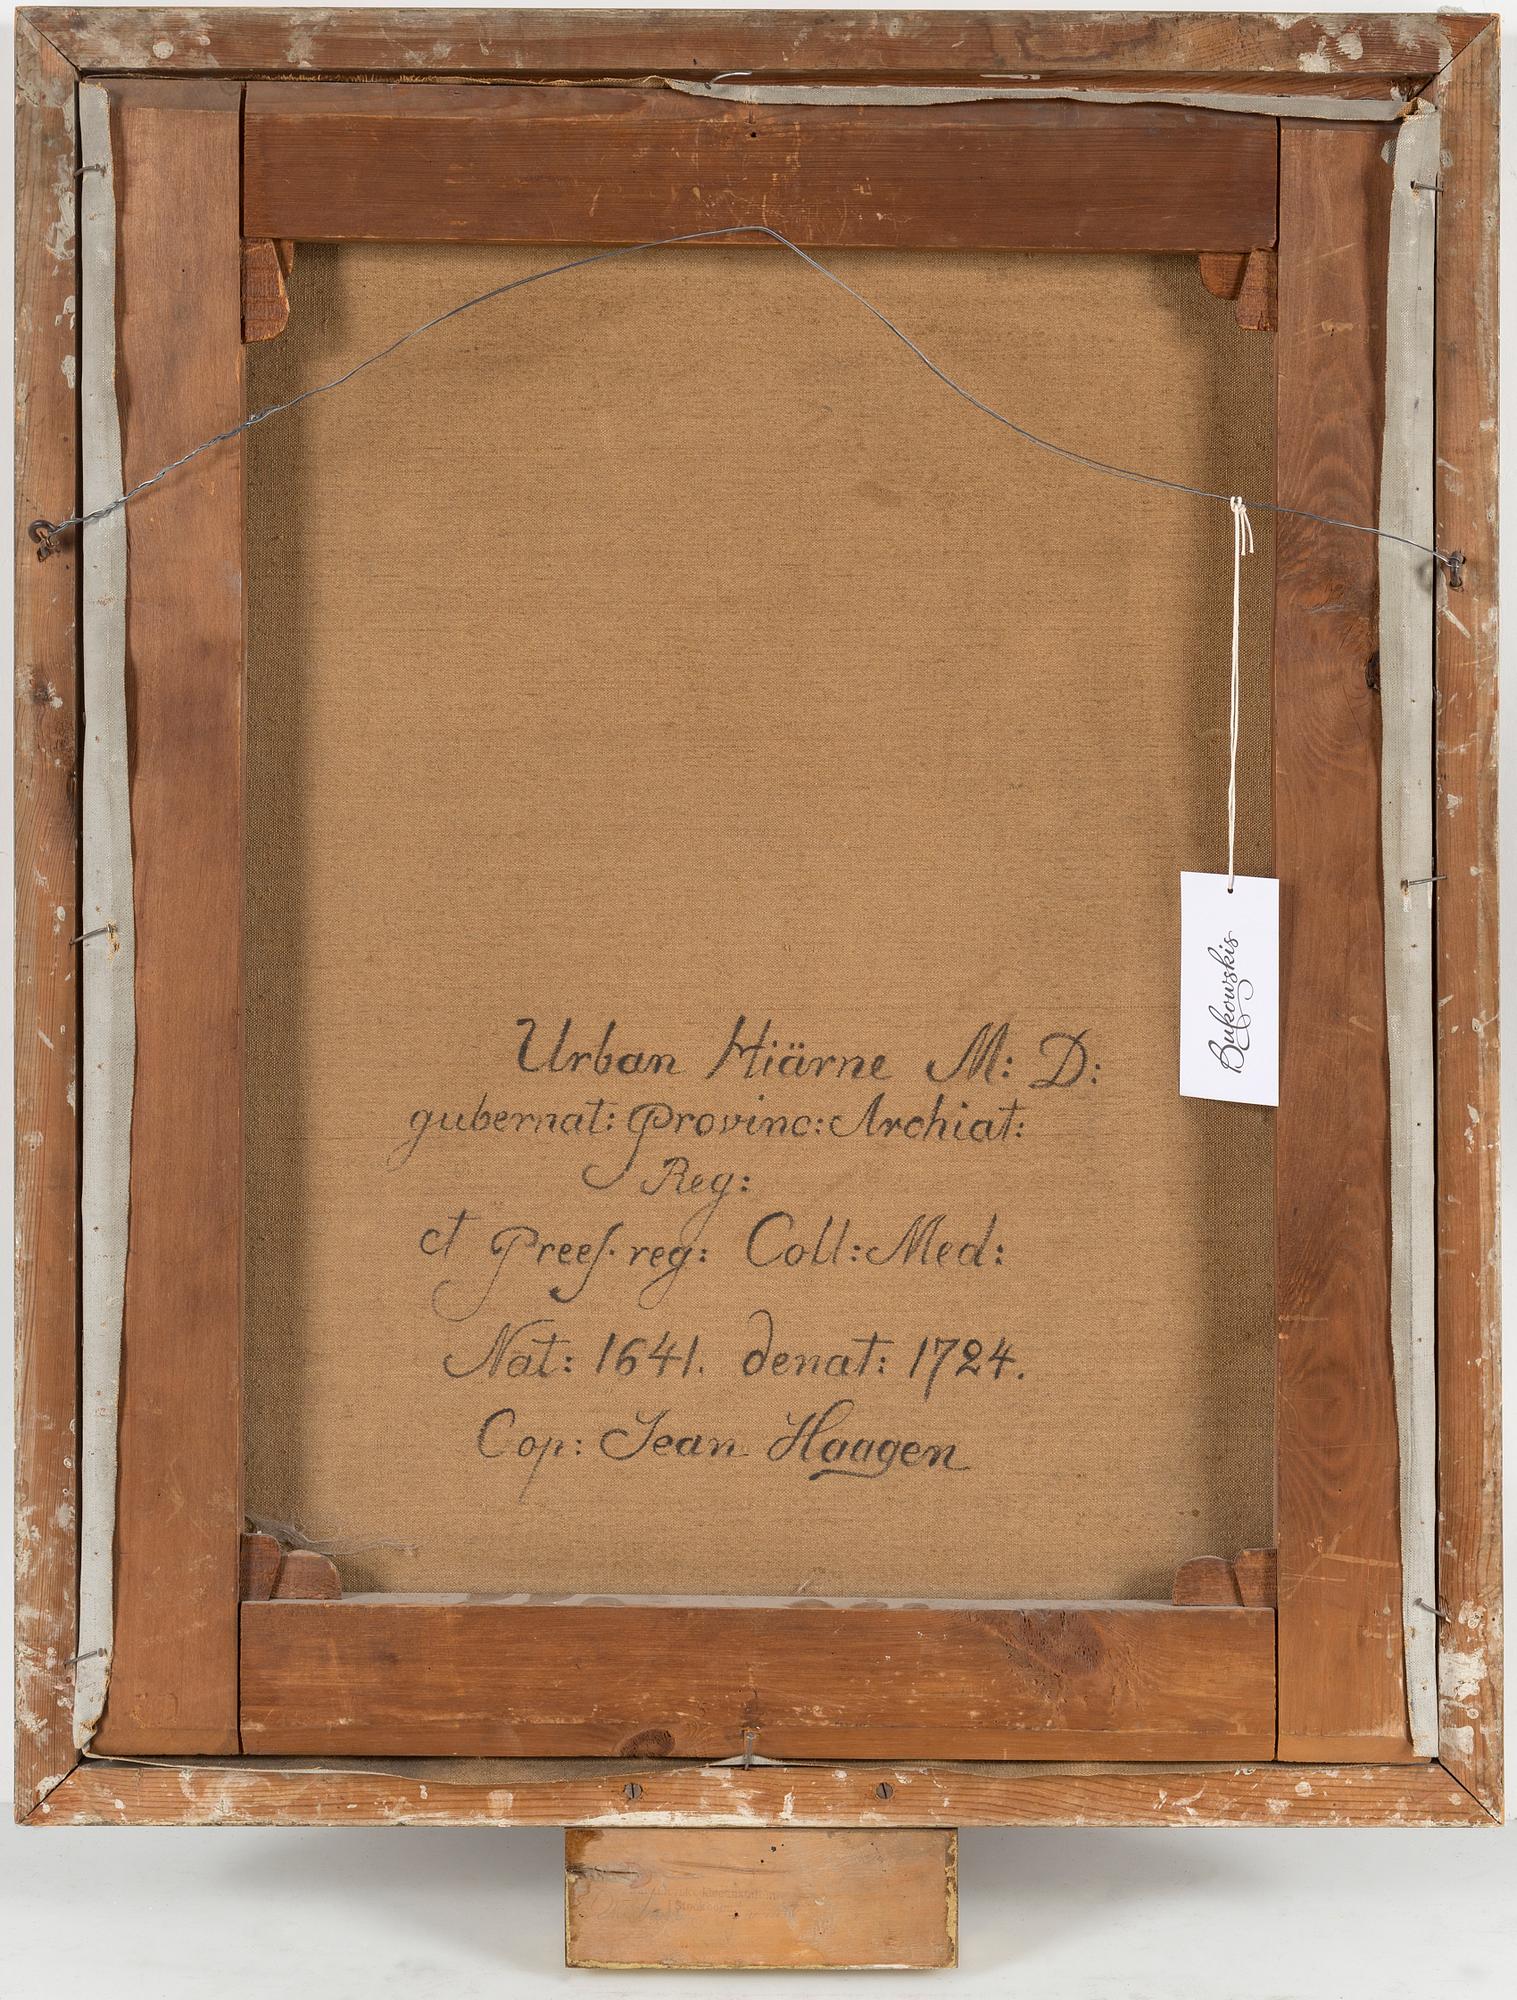 Urban Hiärne M: D:
gubernat: Provinc: Archiat:
Reg:
et Preeſ. reg: Coll: Med:
Nat: 1641. denat: 1724.
Cop: Jean Haagen
Bukowskis